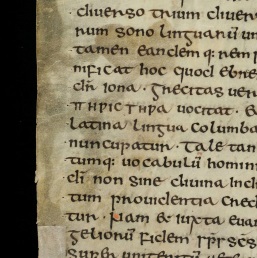 diuerso trium diuer
num sono linguarū un
tamen eandem q: rem
nificat hoc quod ebre
dr̄ iona · grecitas uer
ΠΗΡΙCΤΗΡΑ uocitat · &
latina lingua columba
nuncupatur · Tale tan
tumq: uocabulū homini
dī non sine diuina incl
tum prouidentia cred
tur · Nam & iuxta euan
geliorū fidem sp̄s sc̄s